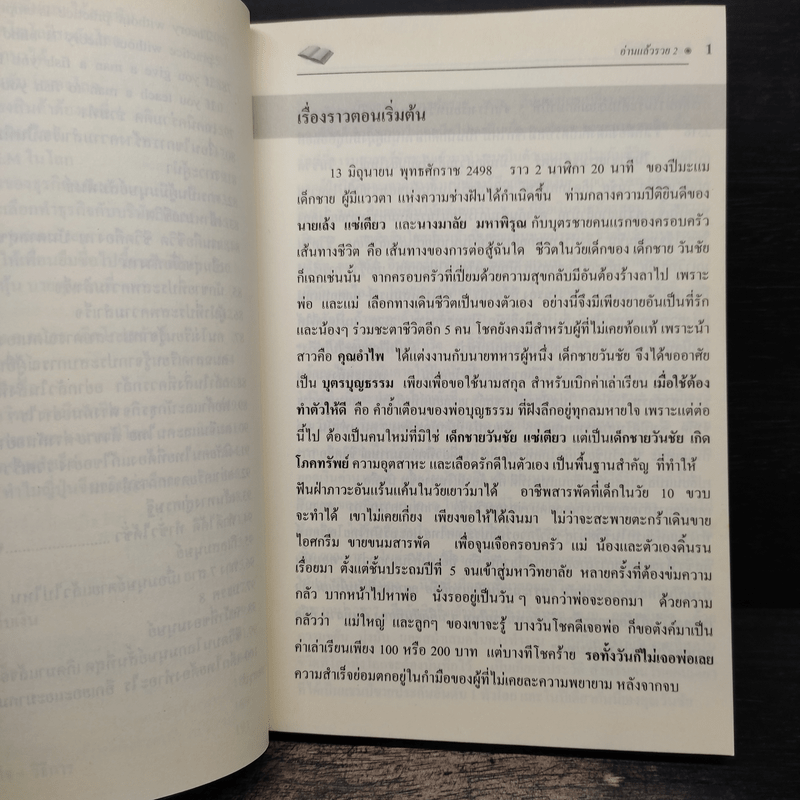 อ่านแล้วรวย 2 ● 1
เรื่องราวตอนเริ่มต้น
13 มิถุนายน พุทธศักราช 2498 ราว 2 นาฬิกา 20 นาที ของปีมะแม
เด็กชาย ผู้มีแววตา แห่งความช่างฝันได้กำเนิดขึ้น ท่ามกลางความปิติยินดีของ
นายเล้ง แซ่เตียว และนางมาลัย มหาพิรุณ กับบุตรชายคนแรกของครอบครัว
เส้นทางชีวิต คือ เส้นทางของการต่อสู้ฉันใด ชีวิตในวัยเด็กของ เด็กชาย วันชัย
ก็เฉกเช่นนั้น จากครอบครัวที่เปี่ยมด้วยความสุขกลับมีอันต้องร้างลาไป เพราะ
พ่อ และแม่ เลือกทางเดินชีวิตเป็นของตัวเอง อย่างนี้จึงมีเพียงยายอันเป็นที่รัก
และน้องๆ ร่วมชะตาชีวิตอีก 5 คน โชคยังคงมีสำหรับผู้ที่ไม่เคยท้อแท้ เพราะน้า
สาวคือ คุณอำไพ ได้แต่งงานกับนายทหารผู้หนึ่ง เด็กชายวันชัย จึงได้ขออาศัย
เป็น บุตรบุญธรรม เพียงเพื่อขอใช้นามสกุล สำหรับเบิกค่าเล่าเรียน เมื่อใช้ต้อง
ทำตัวให้ดี คือ คำย้ำเตือนของพ่อบุญธรรม ที่ฝังลึกอยู่ทุกลมหายใจ เพราะแต่ต่อ
นี้ไป ต้องเป็นคนใหม่ที่มิใช่ เด็กชายวันชัย แซ่เตียว แต่เป็นเด็กชายวันชัย เกิด
โภคทรัพย์ ความอุตสาหะ และเลือดรักดีในตัวเอง เป็นพื้นฐานสำคัญ ที่ทำให้
ฟันฝ่าภาวะอันแร้นแค้นในวัยเยาว์มาได้ อาชีพสารพัดที่เด็กในวัย 10 ขวบ
จะทำได้ เขาไม่เคยเกี่ยง เพียงขอให้ได้เงินมา ไม่ว่าจะสะพายตะกร้าเดินขาย
ไอศกรีม ขายขนมสารพัด เพื่อจุนเจือครอบครัว แม่ น้องและตัวเองดิ้นรน
เรื่อยมา ตั้งแต่ชั้นประถมปีที่ 5 จนเข้าสู่มหาวิทยาลัย หลายครั้งที่ต้องข่มความ
กลัว บากหน้าไปหาพ่อ นั่งรออยู่เป็นวันๆ จนกว่าพ่อจะออกมา ด้วยความ
กลัวว่า แม่ใหญ่ และลูกๆ ของเขาจะรู้ บางวันโชคดีเจอพ่อ ก็ขอตังค์มาเป็น
ค่าเล่าเรียนเพียง 100 หรือ 200 บาท แต่บางทีโชคร้าย รอทั้งวันก็ไม่เจอพ่อเลย
ความสำเร็จย่อมตกอยู่ในกำมือของผู้ที่ไม่เคยละความพยายาม หลังจากจบ